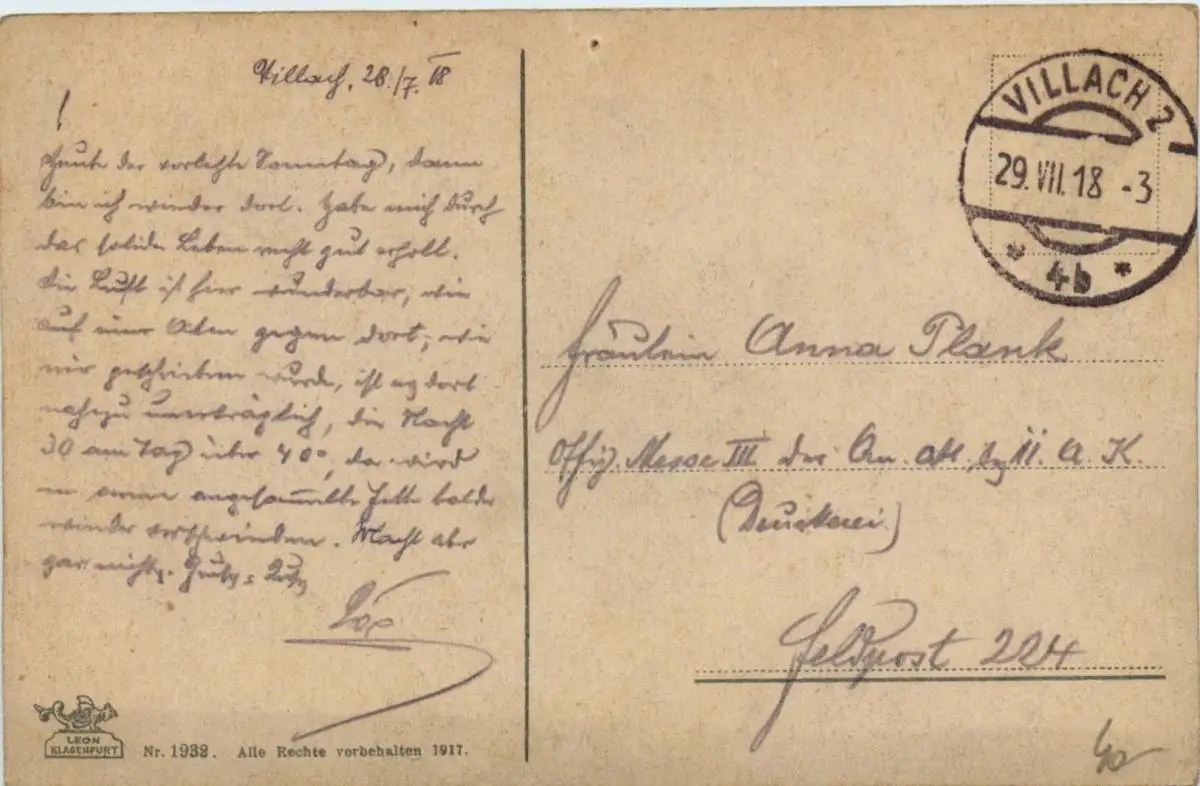 Villach, 28./7. 18
!
Heute der vorletzte Sonntag, dann
bin ich wieder dort. Habe mich durch
das solide Leben recht gut erholt.
Die Luft ist hier wunderbar, wie
auf einer Alm gegen dort, wie
mir geschrieben wurde, ist es dort
nahezu unerträglich, die Nacht
30 am Tag über 40°, da wird
m angesammelte Fette balde
wieder verschwinden. Macht aber
gar nichts. Gruß
LEON
KLAGENFURT
Nr. 1932. Alle Rechte vorbehalten 1917.
VILLACH 2
29. VII. 18 - 3
* 4b *
Fräulein Anna Plank
Offiz. Messe III der Qu. Abt. 11. A. K.
(Druckerei)
Feldpost 224